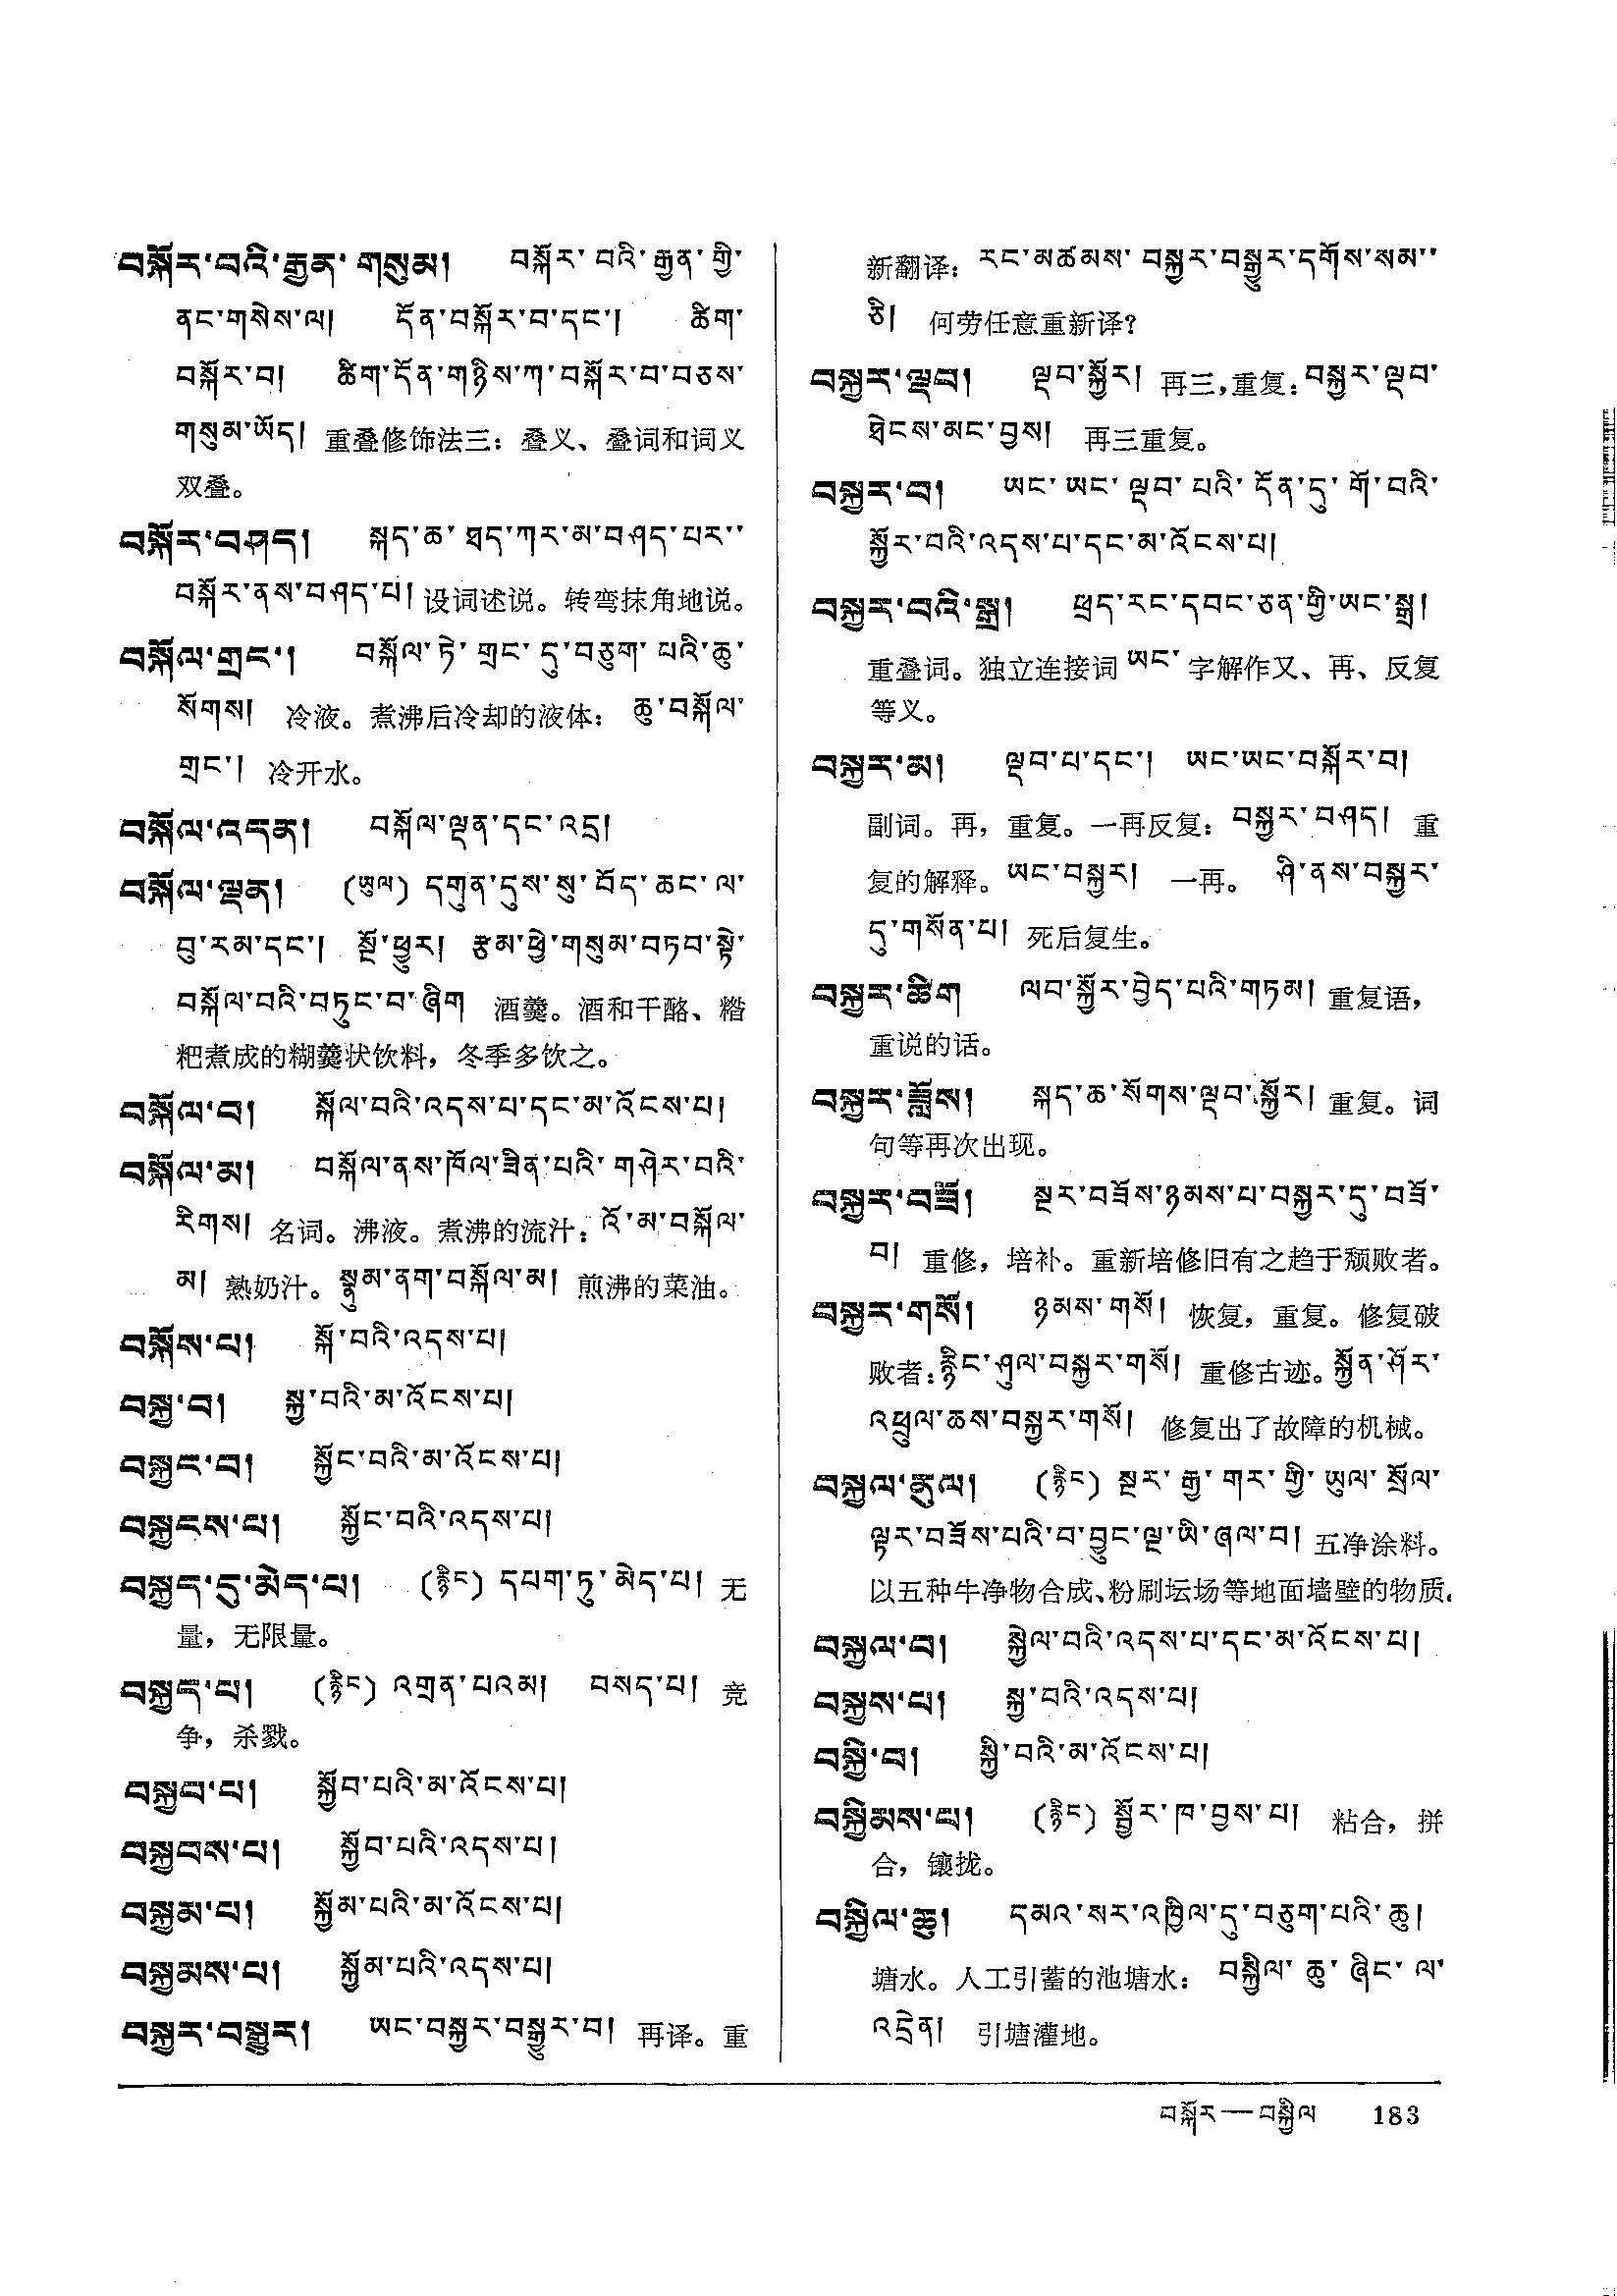 བསྐོར་བའི་རྒྱན་གསུམ། བསྐོར་བའི་རྒྱན་གྱི་
ནང་གསེས་ལ། དོན་བསྐོར་བ་དང་། ཚིག་
བསྐོར་བ། ཚིག་དོན་གཉིས་ཀ་བསྐོར་བ་བཅས་
གསུམ་ཡོད། 重叠修饰法三：叠义、叠词和词义
双叠。
བསྐོར་བཤད། སྐད་ཆ་ཐད་ཀར་མ་བཤད་པར་་
བསྐོར་ནས་བཤད་པ། 设词述说。转弯抹角地说。
བསྐོལ་གྲང་། བསྐོལ་ཏེ་གྲང་དུ་བཅུག་པའི་ཆུ་
སོགས། 冷液。煮沸后冷却的液体： ཆུ་བསྐོལ་
གྲང་། 冷开水。
བསྐོལ་འདན། བསྐོལ་ལྡན་དང་འདྲ།
བསྐོལ་ལྡན། (ཡུལ) དགུན་དུས་སུ་བོད་ཆང་ལ་
བུ་རམ་དང་། སྔོ་ཕྱུར། རྩམ་ཕྱེ་གསུམ་བཏབ་སྟེ་
བསྐོལ་བའི་བཏུང་བ་ཞིག 酒羹。酒和干酪、糌
粑煮成的糊羹状饮料，冬季多饮之。
བསྐོལ་བ། སྐོལ་བའི་འདས་པ་དང་མ་འོངས་པ།
བསྐོལ་མ། བསྐོལ་ནས་ཁོལ་ཟིན་པའི་གཤེར་བའི་
རིགས། 名词。沸液。煮沸的流汁：འོ་མ་བསྐོལ་
མ། 熟奶汁。སྣུམ་ནག་བསྐོལ་མ། 煎沸的菜油。
བསྐོས་པ། སྐོ་བའི་འདས་པ།
བསྐྱ་བ། སྐྱ་བའི་མ་འོངས་པ།
བསྐྱང་བ། སྐྱོང་བའི་མ་འོངས་པ།
བསྐྱངས་པ། སྐྱོང་བའི་འདས་པ།
བསྐྱད་དུ་མེད་པ། (རྙིང) དཔག་ཏུ་མེད་པ། 无
量，无限量。
བསྐྱད་པ། (རྙིང) འགྲན་པའམ། བསད་པ། 竞
争，杀戮。
བསྐྱབ་པ། སྐྱོབ་པའི་མ་འོངས་པ།
བསྐྱབས་པ། སྐྱོབ་པའི་འདས་པ།
བསྐྱམ་པ། སྐྱོམ་པའི་མ་འོངས་པ།
བསྐྱམས་པ། སྐྱོམ་པའི་འདས་པ།
བསྐྱར་བསྒྱུར། ཡང་བསྐྱར་བསྒྱུར་བ། 再译。重
新翻译：རང་མཚམས་བསྐྱར་བསྒྱུར་དགོས་སམ་་
ཅི། 何劳任意重新译？
བསྐྱར་ལྡབ། ལྡབ་སྐྱོར། 再三，重复：བསྐྱར་ལྡབ་
ཐེངས་མང་བྱས། 再三重复。
བསྐྱར་བ། ཡང་ཡང་ལྡབ་པའི་དོན་དུ་གོ་བའི་
སྐྱོར་བའི་འདས་པ་དང་མ་འོངས་པ།
བསྐྱར་བའི་སྒྲ། ཕྲད་རང་དབང་ཅན་གྱི་ཡང་སྒྲ།
重叠词。独立连接词 ཡང་ 字解作又、再、反复
等义。
བསྐྱར་མ། ལྡབ་པ་དང་། ཡང་ཡང་བསྐོར་བ།
副词。再，重复。一再反复：བསྐྱར་བཤད། 重
复的解释。ཡང་བསྐྱར། 一再。 ཤི་ནས་བསྐྱར་
དུ་གསོན་པ། 死后复生。
བསྐྱར་ཚིག ལབ་སྐྱོར་བྱེད་པའི་གཏམ། 重复语，
重说的话。
བསྐྱར་ཟློས། སྐད་ཆ་སོགས་ལྡབ་སྐྱོར། 重复。词
句等再次出现。
བསྐྱར་བཟོ། སྔར་བཟོས་ཉམས་པ་བསྐྱར་དུ་བཟོ་
བ། 重修，培补。重新培修旧有之趋于颓败者。
བསྐྱར་གསོ། ཉམས་གསོ། 恢复，重复。修复破
败者：རྙིང་ཤུལ་བསྐྱར་གསོ། 重修古迹。སྐྱོན་ཤོར་
འཕྲུལ་ཆས་བསྐྱར་གསོ། 修复出了故障的机械。
བསྐྱལ་ནུལ། (རྙིང) སྔར་རྒྱ་གར་གྱི་ཡུལ་སྲོལ་
ལྟར་བཟོས་པའི་བ་བྱུང་ལྔ་ཡི་ཞལ་བ། 五净涂料。
以五种牛净物合成、粉刷坛场等地面墙壁的物质。
བསྐྱལ་བ། སྐྱེལ་བའི་འདས་པ་དང་མ་འོངས་པ།
བསྐྱས་པ། སྐྱ་བའི་འདས་པ།
བསྐྱི་བ། སྐྱི་བའི་མ་འོངས་པ།
བསྐྱིམས་པ། (རྙིང) སྦྱོར་ཁ་བྱས་པ། 粘合，拼
合，镶拢。
བསྐྱིལ་ཆུ། དམའ་སར་འཁྱིལ་དུ་བཅུག་པའི་ཆུ།
塘水。人工引蓄的池塘水： བསྐྱིལ་ཆུ་ཞིང་ལ་
འདྲེན། 引塘灌地。
བསྐོར—བསྐྱིལ 183